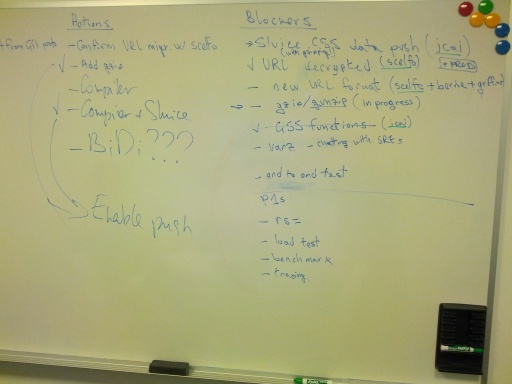 Actions
- Confirm URL migr. w/ scelfo
- Add gzip
- Compiler
- Compiler + Sluice
- BiDi???
Enable push
Blockers
Sluice CSS data push (jcai)
URL decrypted (scelfo)
- new URL format (scelfo +
- gzip/gunzip (in progress)
- GSS functions (jcai)
- varz - chatting with SREs
- end to end test
P1s
- rs=
- load test
- benchmark
- tracing